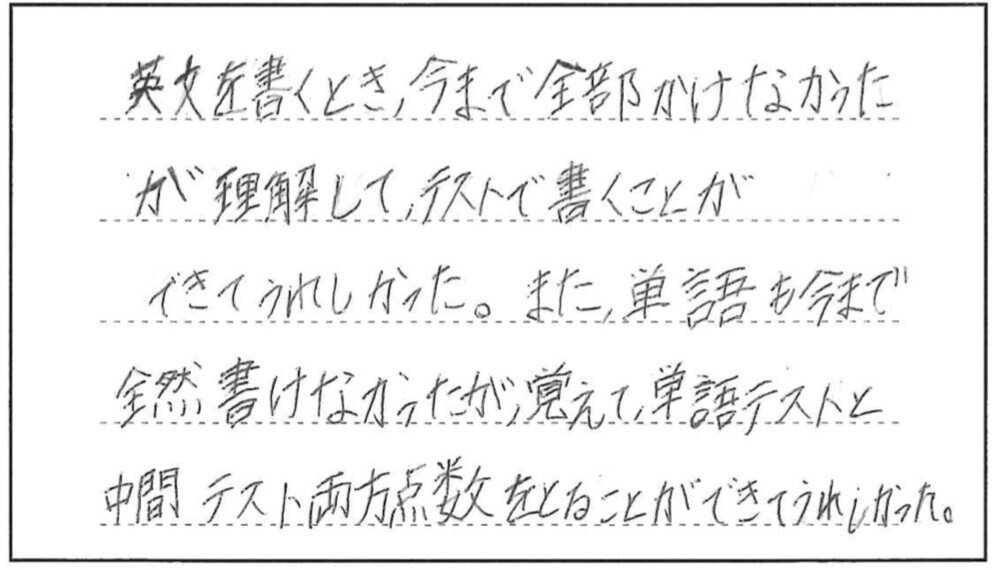 英文を書くとき,今まで全部かけなかった
が理解して,テストで書くことが
できてうれしかった。また,単語も今まで
全然書けなかったが,覚えて,単語テストと
中間テスト両方点数をとることができてうれしかった。